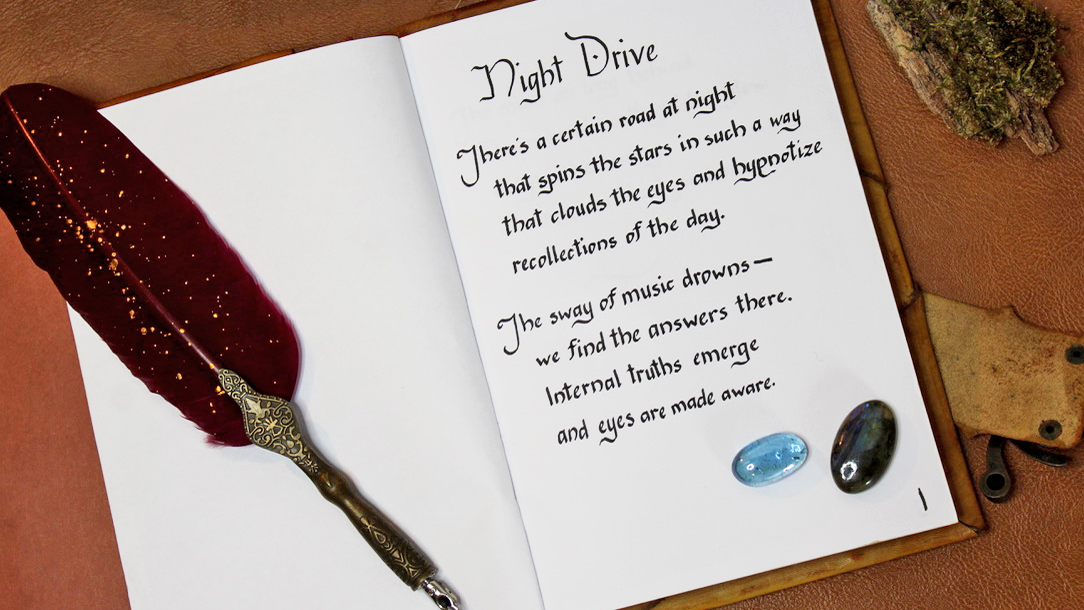 Night Drive
There's a certain road at night
that spins the stars in such a way
that clouds the eyes and hypnotize
recollections of the day.
The sway of music drowns—
we find the answers there.
Internal truths emerge
and eyes are made aware.
1